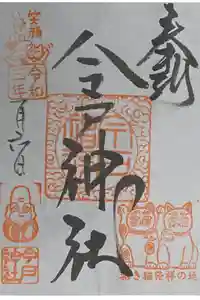 奉拝
今戸神社
令和
二年
月六日
招き猫発祥の地
今戸
神社